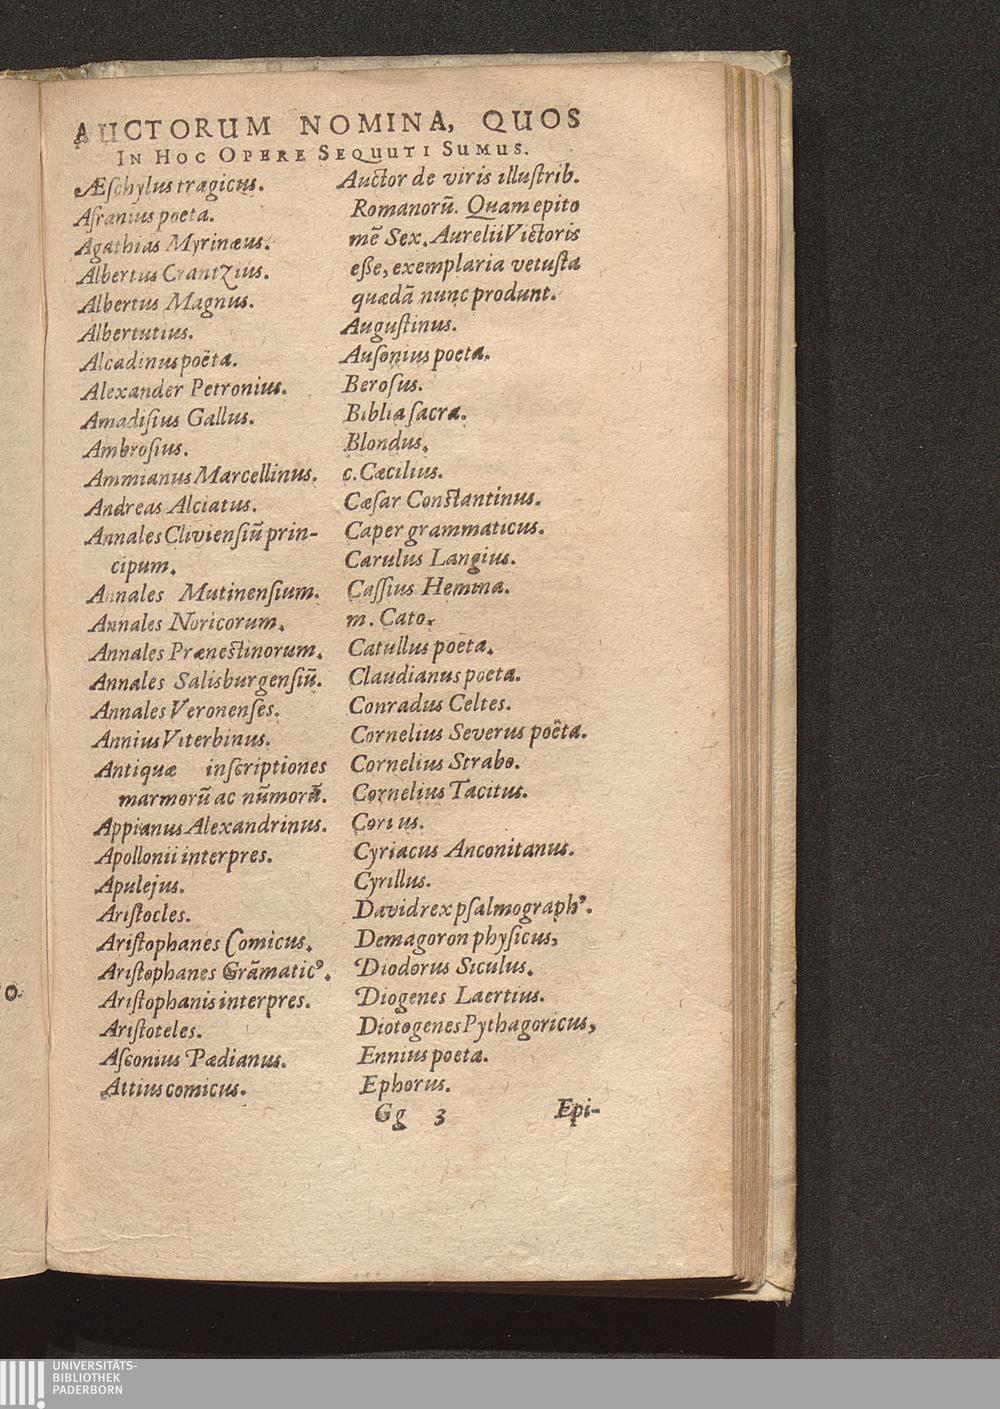 AUCTORUM NOMINA, QUOS
IN HOC OPERE SEQUUTI SUMUS.
Æſchylus tragicus.
Afranius poeta.
Agathias Myrinæus.
Albertus Crantzius.
Albertus Magnus.
Albertutius.
Alcadinus poëta.
Alexander Petronius.
Amadiſius Gallus.
Ambroſius.
Ammianus Marcellinus.
Andreas Alciatus.
Annales Clivienſiũ prin-
cipum.
Annales Mutinenſium.
Annales Noricorum.
Annales Præneſtinorum.
Annales Salisburgenſiũ.
Annales Veronenſes.
Annius Viterbinus.
Antiquæ inſcriptiones
marmorũ ac nũmorũ.
Appianus Alexandrinus.
Apollonii interpres.
Apulejus.
Ariſtocles.
Ariſtophanes Comicus.
Ariſtophanes Grãmaticꝰ.
Ariſtophanis interpres.
Ariſtoteles.
Aſconius Pædianus.
Attius comicus.
Auctor de viris illuſtrib.
Romanorũ. Quam epito
mẽ Sex. Aurelii Victoris
eſſe, exemplaria vetuſta
quædã nunc produnt.
Auguſtinus.
Auſonius poeta.
Beroſus.
Biblia ſacra.
Blondus.
c. Cæcilius.
Cæſar Conſtantinus.
Caper grammaticus.
Carulus Langius.
Caſſius Hemina.
m. Cato.
Catullus poëta.
Claudianus poeta.
Conradus Celtes.
Cornelius Severus poëta.
Cornelius Strabo.
Cornelius Tacitus.
Corius.
Cyriacus Anconitanus.
Cyrillus.
David rex pſalmographꝰ.
Demagoron phyſicus,
Diodorus Siculus.
Diogenes Laertius.
Diotogenes Pythagoricus,
Ennius poeta.
Ephorus.
Gg 3 Epi-
o.
UNIVERSITÄTS-
BIBLIOTHEK
PADERBORN